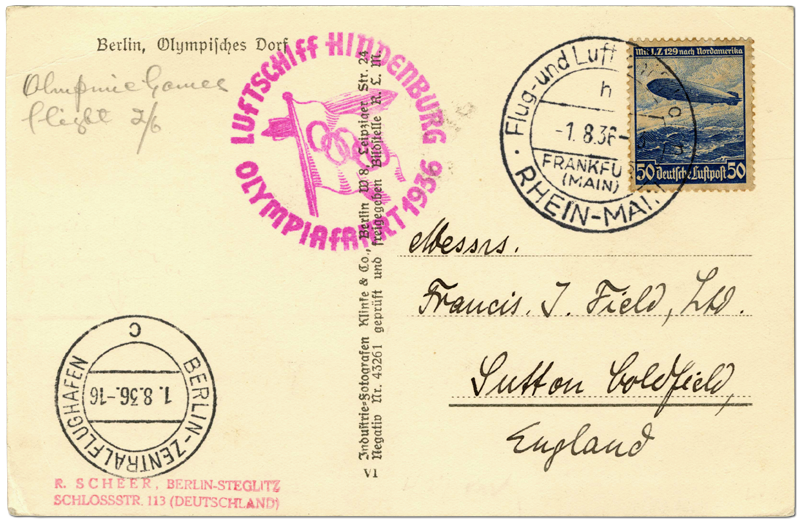 Berlin, Olympisches Dorf
Olmpmic Games
flight 2/6
LUFTSCHIFF HINDENBURG
OLYMPIAFAHRT 1936
Industrie-Fotografen Klinke & Co., Berlin W 8, Leipziger Str. 24
Negativ Nr. 43261 geprüft und freigegeben Bildstelle R. L. M.
V1
Flug- und Luft
h
-1.8.36-
FRANKFU
(MAIN)
RHEIN-MAIN
Mit L.Z. 129 nach Nordamerika
50 Deutsche Luftpost 50
Messrs.
Francis. J. Field, Ltd.
Sutton Coldfield,
England
BERLIN-ZENTRALFLUGHAFEN
1.8.36.-16
C
R. SCHEER, BERLIN-STEGLITZ
SCHLOSSSTR. 113 (DEUTSCHLAND)